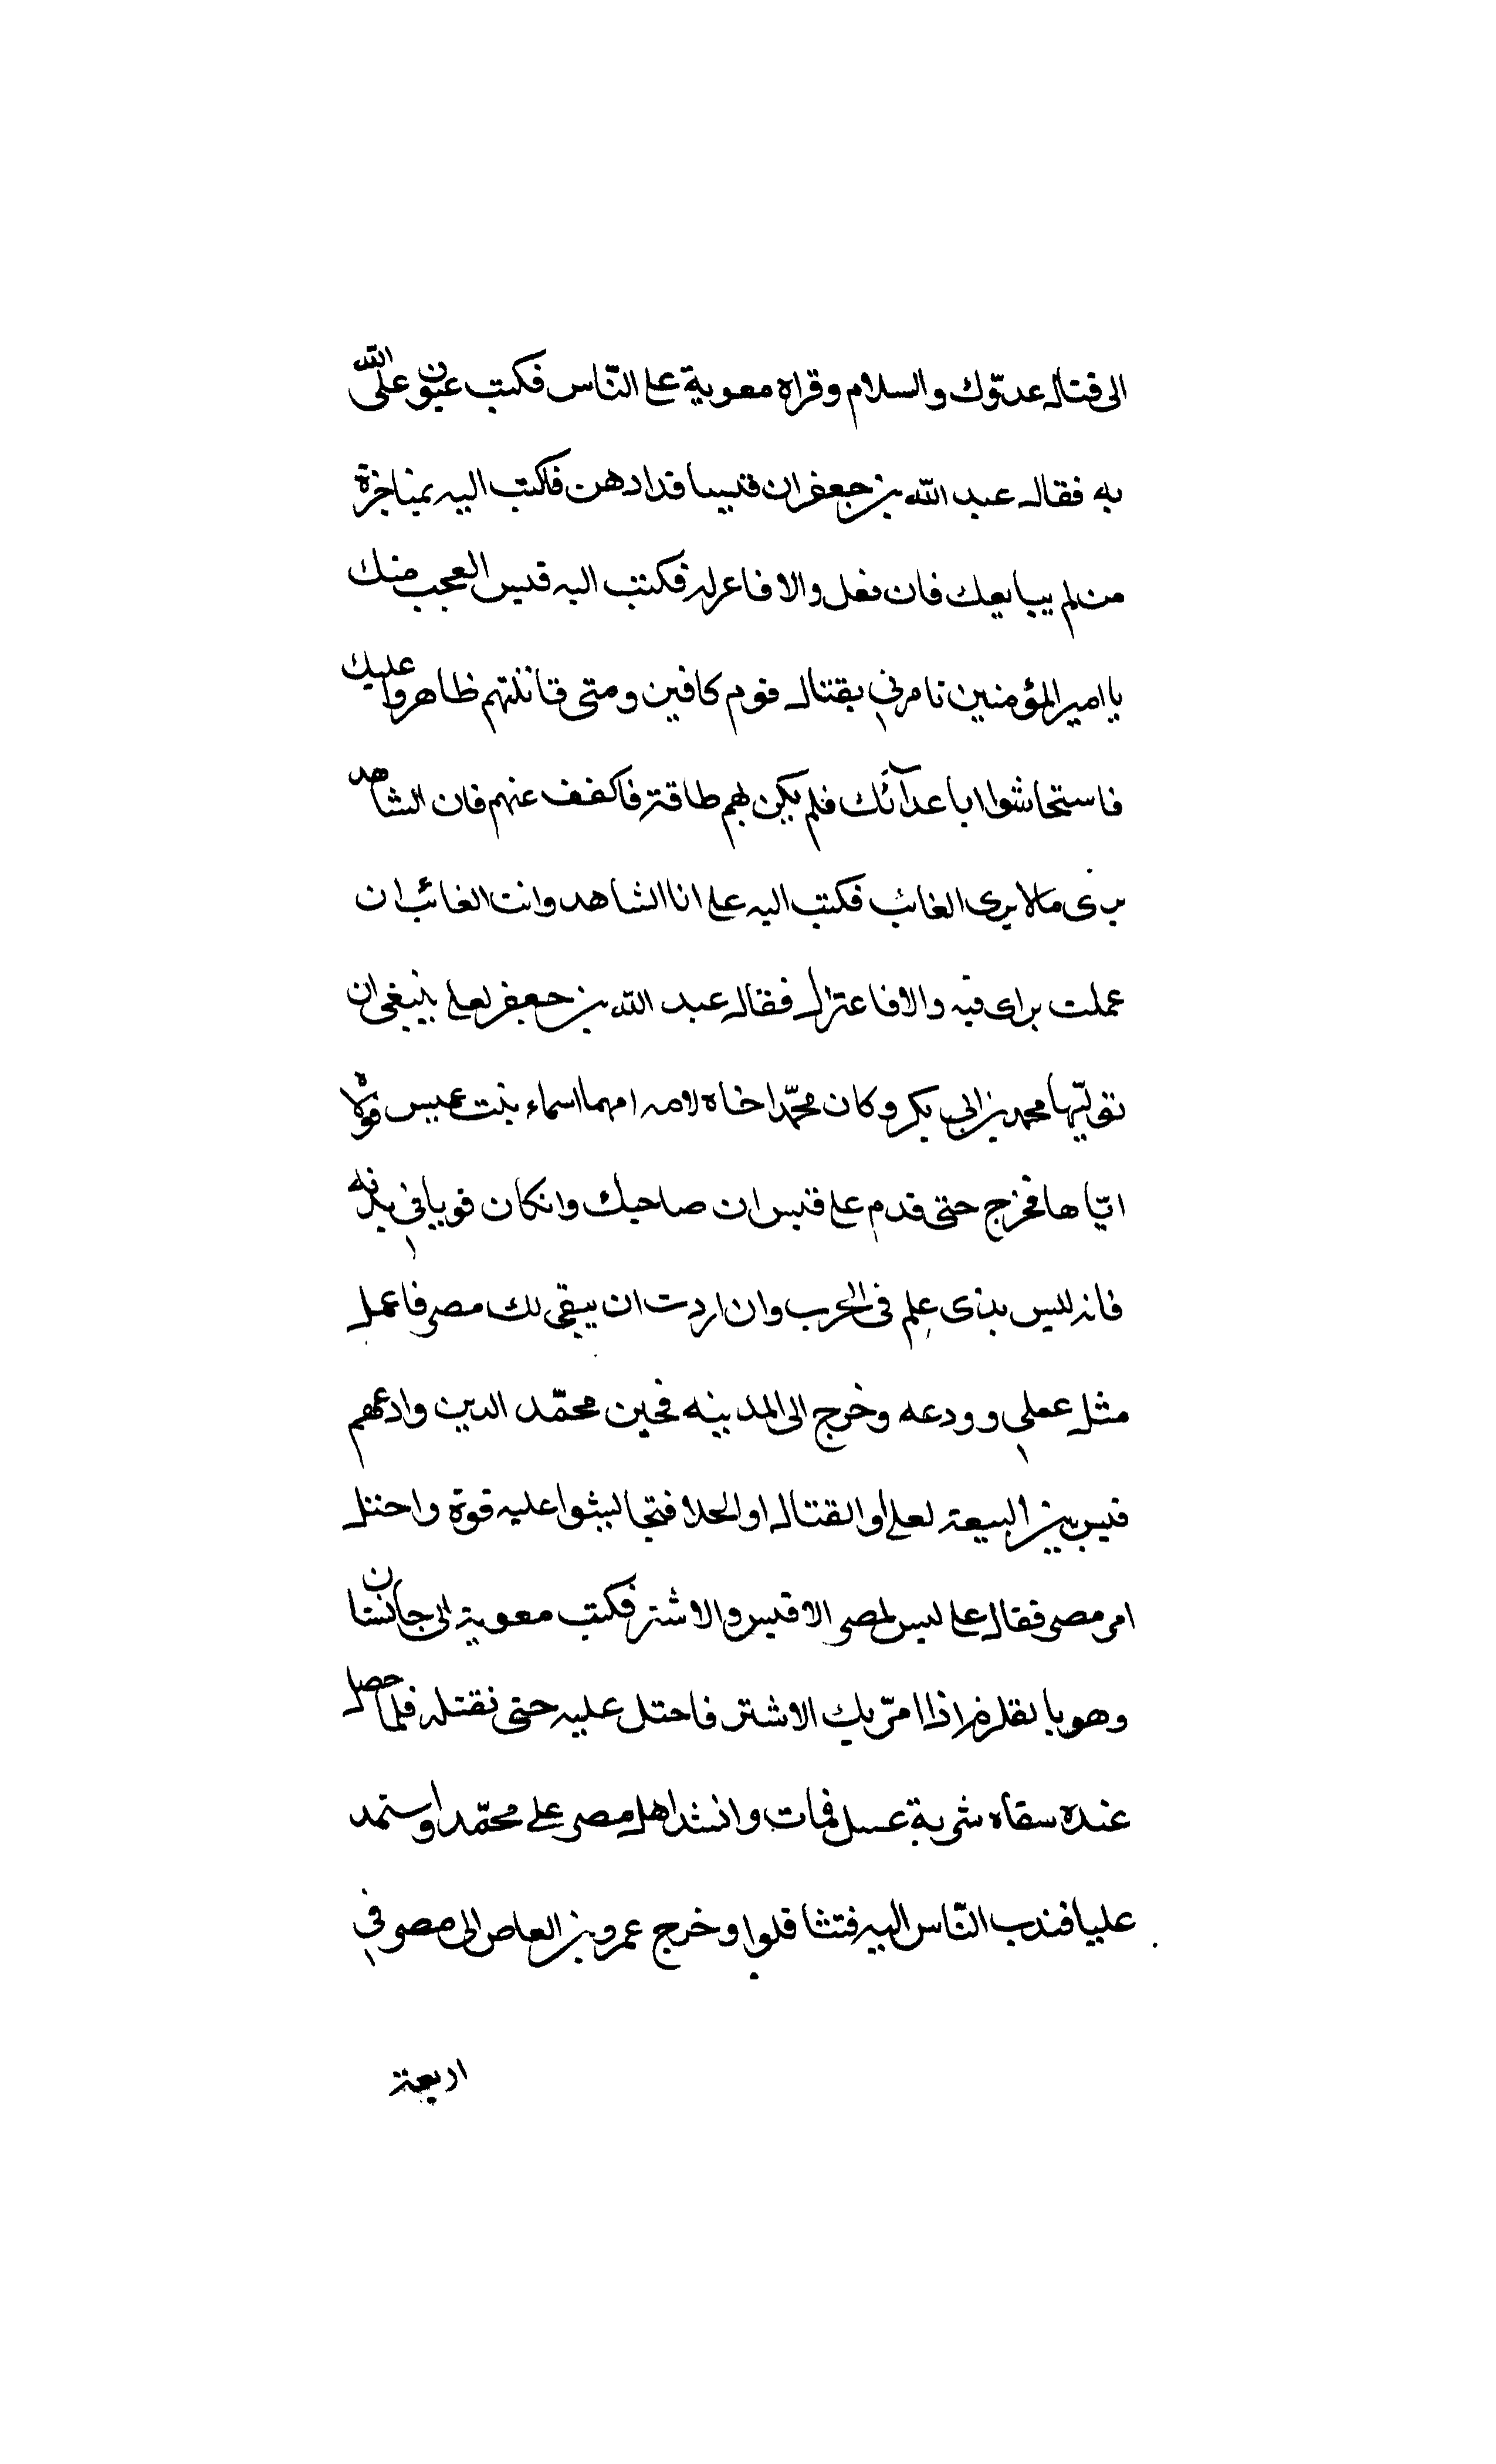 الى قتال عدوّك والسلام وقراه معوية على النّاس فكتب عيون علىّ اللّه
به فقال عبد اللّه بن جعفر ان قيسا قد ادهن فاكتب اليه بمناجزة
من لم يبايعك فان فعل والا فاعزله فكتب اليه قيس العجب منك
يا امير المؤمنين تامرنى بقتال قوم كافين ومتى قاتلتهم ظاهروا عليك
فاستحاشوا باعدآئك فلم يكن لهم طاقة فاكفف عنهم فان الشاهد
يرى ما لا يرى الغائب فكتب اليه على انا الشاهد وانت الغائب ان
عملت براى فيه والا فاعتزل فقال عبد اللّه بن جعفر لعلى ينبغى ان
توليّها محمد بن ابى بكر وكان محمّد اخاه لامه امهما اسماء بنت عميس فولاه
ايّاها فخرج حتى قدم على قيس ان صاحبك وانكان قويا فى بدنه
فانه ليس بذى علم فى الحرب وان اردت ان يبقى لك مصر فاعمل
مثل عملى وودعه وخرج الى المدينه فحين محمّد الدين وادعهم
قيس بين البيعة لعلى او القتال او الجلا فتجالبثوا عليه قوة واختل
امر مصر فقال على ليس لمصر الا قيس والاشتر فكتب معوية الى جانستان
وهو بالقلزم اذا امرّ بك الاشتر فاحتل عليه حتى نقتله فلما حصل
عنده سقاه شربة عسل فمات وانشد اهل مصر على محمّد واستمد
عليا فندب النّاس اليه فتثاقلوا وخرج عمرو بن العاص الى مصر فى
اربعة